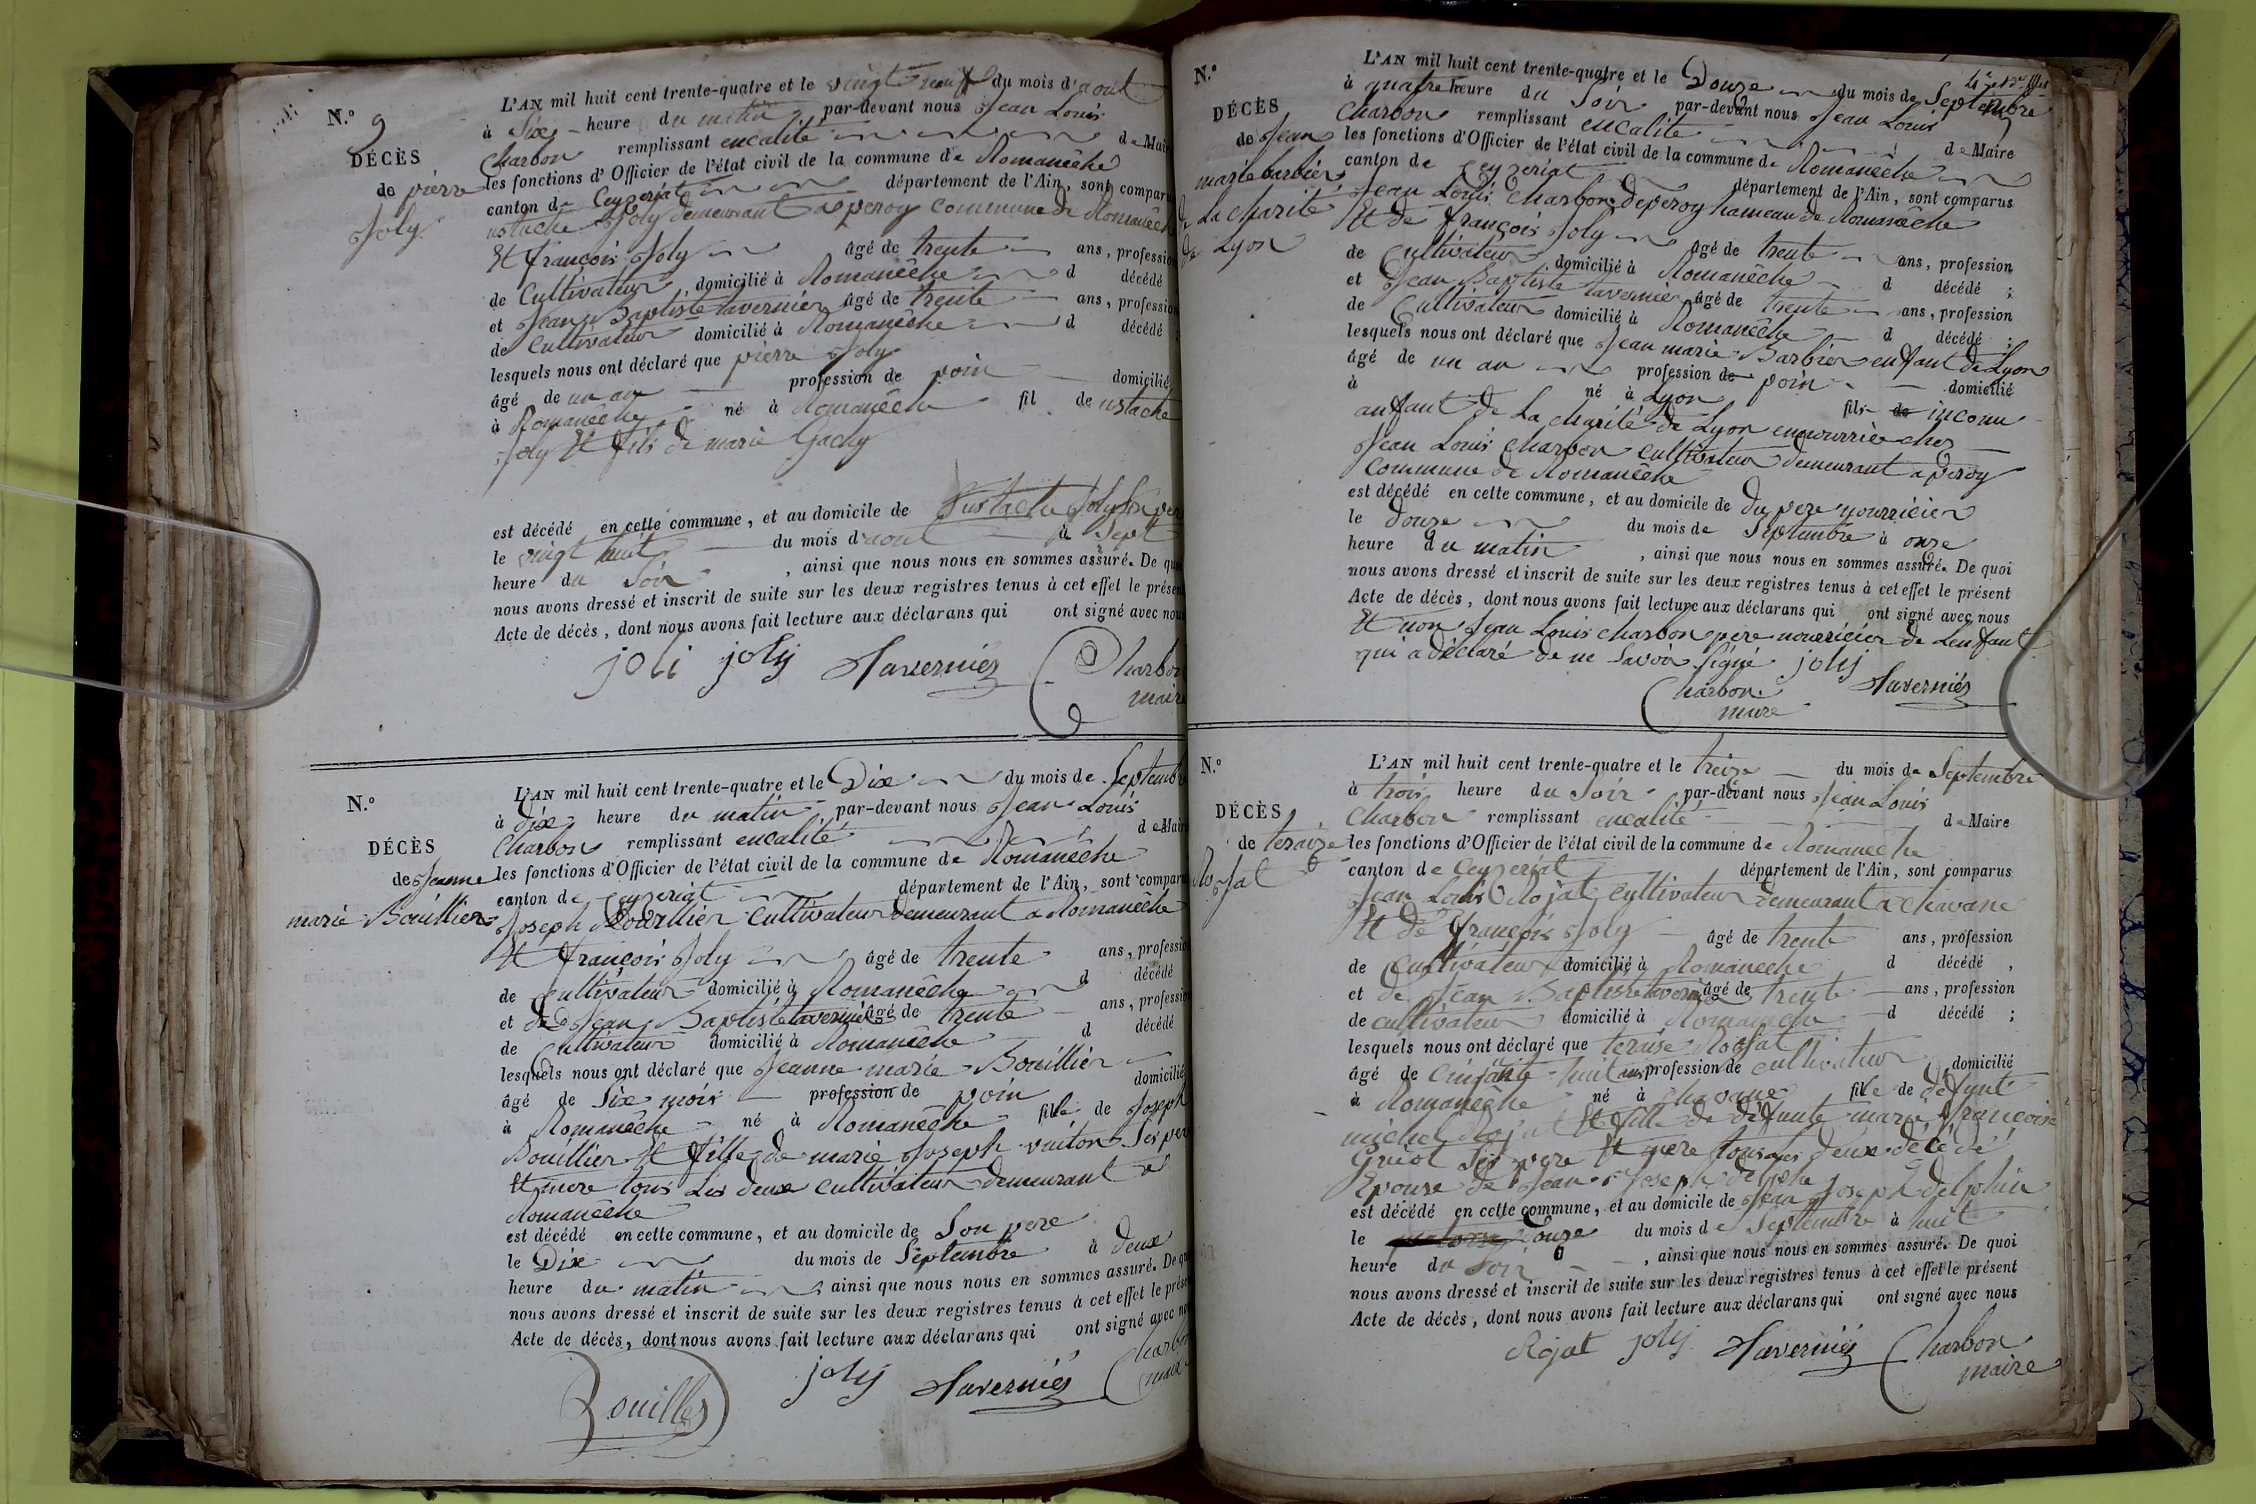 N.º 9
DÉCÈS
de pierre
Joly
L'AN mil huit cent trente-quatre et le vingt neuf du mois d'aout
à Six heure du matin par-devant nous Jean Louis
Charbon remplissant encalité de Mair
les fonctions d'Officier de l'état civil de la commune de Romanêche
canton de Ceyzeriat département de l'Ain, sont compar
ustache Joly demeurant a peroy commune de Romanêch
Et françois Joly âgé de trente ans, profession
de Cultivateur domicilié à Romanêche d décédé
et Jean Baptiste tavernier âgé de trente ans, profession
de Cultivateur domicilié à Romanêche d décédé
lesquels nous ont déclaré que pierre Joly
âgé de un an profession de poin domicilié
à Romanêche né à Romanêche fil de ustache
Joly Et fils de marie Gachy
est décédé en cette commune, et au domicile de Eustache Joly Son per
le vingt huit du mois d'aout à Sept
heure du Soir, ainsi que nous nous en sommes assuré. De qu
nous avons dressé et inscrit de suite sur les deux registres tenus à cet effet le présen
Acte de décès, dont nous avons fait lecture aux déclarans qui ont signé avec nou
joli joly Tavernier Charbon
maire
N.º
DÉCÈS
de Jeanne
marie Bouillier
L'AN mil huit cent trente-quatre et le Dix du mois de Septembr
à dix heure du matin par-devant nous Jean Louis
Charbon remplissant encalité de Mair
les fonctions d'Officier de l'état civil de la commune de Romanêche
canton de Ceyzeriat département de l'Ain, sont compar
Joseph Bouillier Cultivateur demeurant a Romanêche
Et françois Joly âgé de trente ans, professi
de Cultivateur domicilié à Romanêche d décédé
et de Jean Baptiste tavernier âgé de trente ans, professi
de Cultivateur domicilié à Romanêche d décédé
lesquels nous ont déclaré que Jeanne marie Bouillier
âgé de Six mois profession de poin domicilié
à Romanêche né à Romanêche fille de Joseph
Bouillier Et fille de marie Joseph vuiton Ses per
Et mere tous Les deux cultivateur demeurant a
Romanêche
est décédé en cette commune, et au domicile de Son pere
le Dix du mois de Septembre à deux
heure du matin, ainsi que nous nous en sommes assuré. De qu
nous avons dressé et inscrit de suite sur les deux registres tenus à cet effet le prése
Acte de décès, dont nous avons fait lecture aux déclarans qui ont signé avec no
Bouillier joly Tavernier Charbon
mair
N.º
DÉCÈS
de Jean
marie barbier
de La charité
de Lyon
L'AN mil huit cent trente-quatre et le Douze du mois de Septembre
à quatre heure du Soir par-devant nous Jean Louis
Charbon remplissant encalité de Maire
les fonctions d'Officier de l'état civil de la commune de Romanêche
canton de Ceyzeriat département de l'Ain, sont comparus
Jean Louis Charbon de peroy hameau de Romanêche
Et de françois Joly âgé de trente ans, profession
de Cultivateur domicilié à Romanêche d décédé ;
et Jean Baptiste tavernier âgé de trente ans, profession
de Cultivateur domicilié à Romanêche d décédé ;
lesquels nous ont déclaré que Jean marie Barbier enfant de Lyon
âgé de un an profession de poin domicilié
à né à Lyon fils de inconu
anfant de La charité de Lyon ennourrie ches
Jean Louis Charbon cultivateur demeurant a peroy
Commune de Romanêche
est décédé en cette commune, et au domicile de Du pere nourricier
le Douze du mois de Septembre à onze
heure du matin, ainsi que nous nous en sommes assuré. De quoi
nous avons dressé et inscrit de suite sur les deux registres tenus à cet effet le présent
Acte de décès, dont nous avons fait lecture aux déclarans qui ont signé avec nous
Et non Jean Louis Charbon pere nourricier de Lenfant
qui a déclaré de ne Savoir Signé joly
Charbon Tavernier
maire
N.º
DÉCÈS
de teraize
Rojat
L'AN mil huit cent trente-quatre et le treize du mois de Septembre
à trois heure du Soir par-devant nous Jean Louis
Charbon remplissant encalité de Maire
les fonctions d'Officier de l'état civil de la commune de Romanêche
canton de Ceyzeriat département de l'Ain, sont comparus
Jean Louis Rojat Cultivateur demeurant a chavane
Et de françois Joly âgé de trente ans, profession
de Cultivateur domicilié à Romanêche d décédé ,
et de Jean Baptiste tavernier âgé de trente ans, profession
de cultivateur domicilié à Romanêche d décédé ;
lesquels nous ont déclaré que teraise Rojat
âgé de Cinquante huit ans profession de cultivateur domicilié
à Romanêche né à chavanne fille de defunt
michel Rojat Et fille de défunte marie françoise
Gueot Ses pere Et mere tous les deux décédé
Epouse de Jean Joseph delphin
est décédé en cette commune, et au domicile de Jean Joseph delphin
le Douze du mois de Septembre à huit
heure du Soir, ainsi que nous nous en sommes assuré. De quoi
nous avons dressé et inscrit de suite sur les deux registres tenus à cet effet le présent
Acte de décès, dont nous avons fait lecture aux déclarans qui ont signé avec nous
Rojat joly Tavernier Charbon
maire